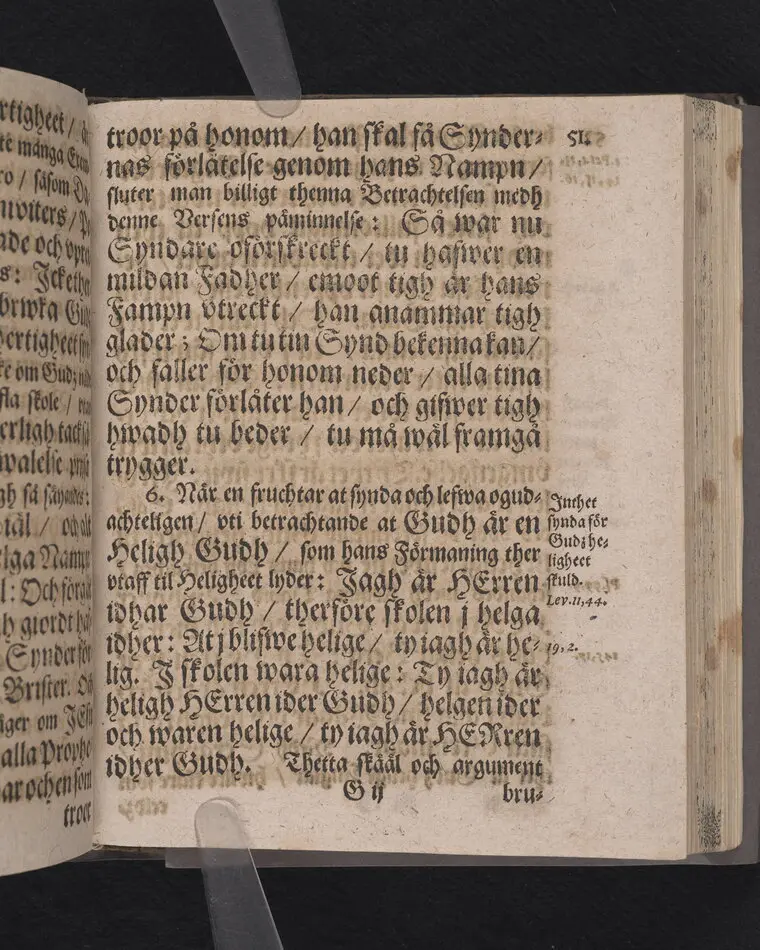 rtigheet /
te många
ro / såsom
nwiters /
ade och
s: Jcke
brwka
ertigheet
ke om Gudz
sla skole /
erligh tack
walelse
gh få
iäl /
lga Nampn
l: Och
h giordt
Synder
Brister.
iger om
alla Prophe
ar och en som
troor
troor på honom / han skal få Synder-
nas förlåtelse genom hans Nampn /
sluter man billigt thenna Betrachtelsen medh
denne Versens påminnelse: Så war nu
Syndare oförskreckt / tu hafwer en
mildan Fadher / emoot tigh är hans
Fampn vtreckt / han anammar tigh
glader; Om tu tin Synd bekenna kan /
och faller för honom neder / alla tina
Synder förlåter han / och gifwer tigh
hwadh tu beder / tu må wäl framgå
trygger.
6. När en fruchtar at synda och lefwa ogud-
achteligen / vti betrachtande at Gudh är en
Heligh Gudh / som hans Förmaning ther
vtaff til Heligheet lyder: Jagh är HErren
idhar Gudh / therföre skolen j helga
idher: At j blifwe helige / ty iagh är he-
lig. J skolen wara helige: Ty iagh är
heligh HErren ider Gudh / helgen ider
och waren helige / ty iagh är HERren
idher Gudh. Thetta skääl och argument
G ij bru-
51.
Inthet
synda för
Gudz he-
ligheet
skuld.
Lev. 11, 44.
19, 2.